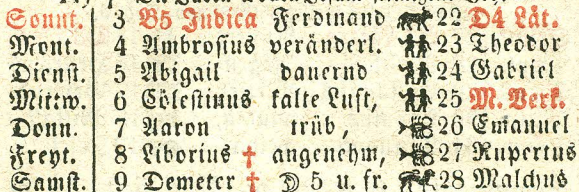 Sonnt. 3 B5 Judica Ferdinand 22 D4 Lät.
Mont. 4 Ambrosius veränderl. 23 Theodor
Dienst. 5 Abigail dauernd 24 Gabriel
Mittw. 6 Cölestinus kalte Luft, 25 M. Verk.
Donn. 7 Aaron trüb, 26 Emanuel
Freyt. 8 Liborius † angenehm, 27 Rupertus
Samst. 9 Demeter † ☽ 5 u. fr. 28 Malchus